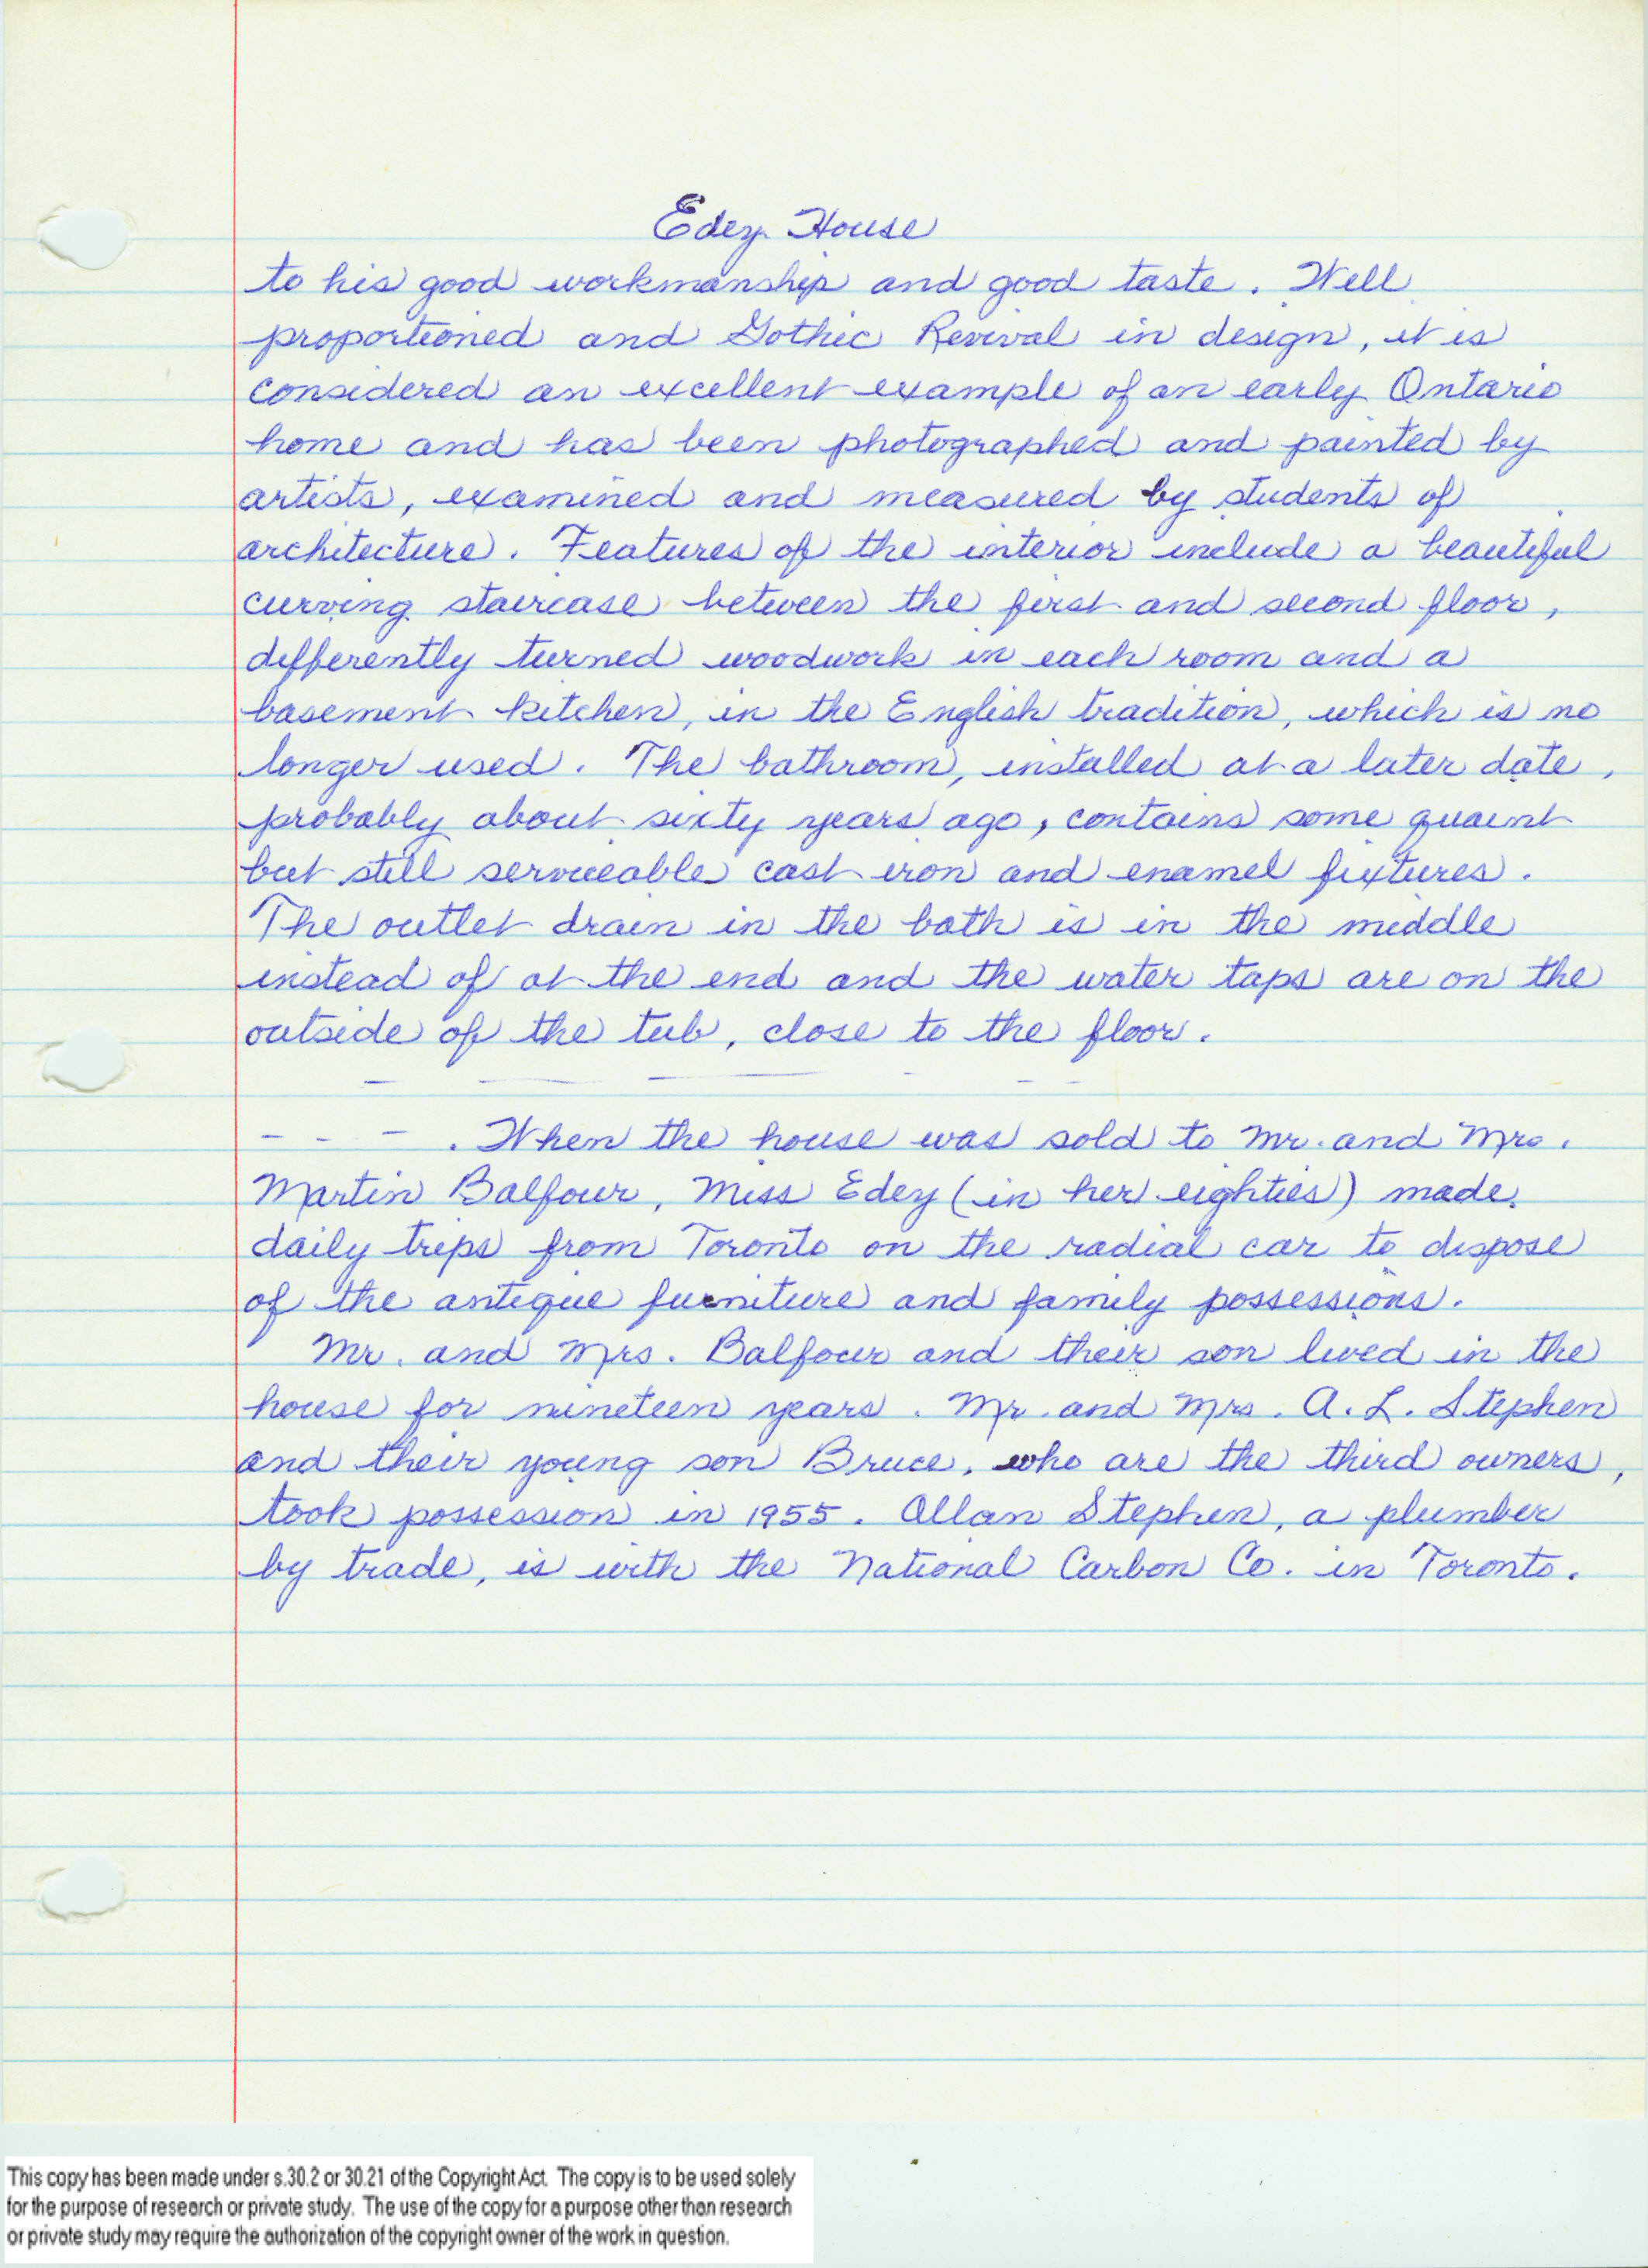 Edey House
to his good workmanship and good taste. Well
proportioned and Gothic Revival in design, it is
considered an excellent example of an early Ontario
home and has been photographed and painted by
artists, examined and measured by students of
architecture. Features of the interior include a beautiful
curving staircase between the first and second floor,
differently turned woodwork in each room and a
basement kitchen, in the English tradition, which is no
longer used. The bathroom, installed at a later date,
probably about sixty years ago, contains some quaint
but still serviceable cast iron and enamel fixtures.
The outlet drain in the bath is in the middle
instead of at the end and the water taps are on the
outside of the tub, close to the floor.
- - - . When the house was sold to Mr. and Mrs.
Martin Balfour, Miss Edey (in her eighties) made
daily trips from Toronto on the radial car to dispose
of the antique furniture and family possessions.
Mr. and Mrs. Balfour and their son lived in the
house for nineteen years. Mr. and Mrs. A. L. Stephen
and their young son Bruce, who are the third owners,
took possession in 1955. Allan Stephen, a plumber
by trade, is with the National Carbon Co. in Toronto.
This copy has been made under s.30.2 or 30.21 of the Copyright Act. The copy is to be used solely
for the purpose of research or private study. The use of the copy for a purpose other than research
or private study may require the authorization of the copyright owner of the work in question.